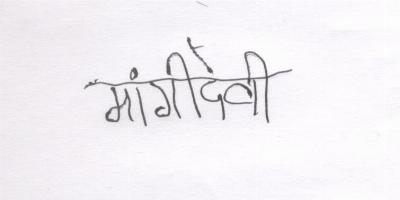 मांगीदेवी